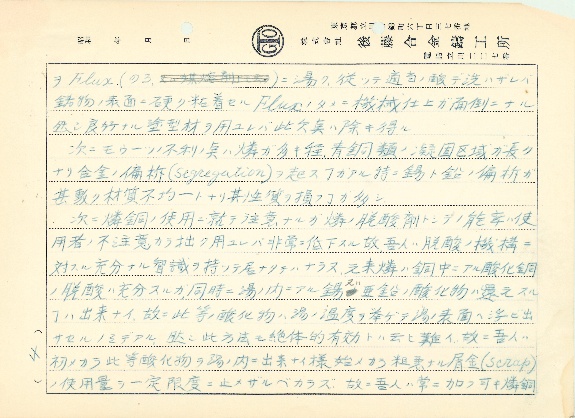 株式會社 後藤合金鑄工所
昭和 年 月 日
ヲ Flux. (ノミ, ニ湯ク, 從ッテ適当ノ酸デ洗ハザレバ
鋳物ノ表面ニ硬ク粘着セル Flux ノタメニ機械仕上ガ面倒ニナル
然シ良好ナル塗型材ヲ用ユレバ此欠臭ハ除キ得ル
次ニモウ一ツ不利ノ臭ハ燐ガ多キ程青銅類ノ凝固区域ガ長クナ
ナリ合金ノ偏析(segregation)ヲ起スコトガアル時ニ錫ト鉛ノ偏析ガ
甚敷ク材質不均一トナリ其性質ヲ損フコトガ多シ
次ニ燐銅ノ使用ニ就テ注意ナルガ燐ノ脱酸剤トシテノ能率ハ使
用者ノ不注意カラ拙ク用ユレバ非常ニ低下スル故吾人ハ脱酸ノ機構ニ
対スル充分ナル智識ヲ持ッテ居ナケレバナラヌ 元来燐ハ銅中ニアル酸化銅
ノ脱酸ハ充分スルガ同時ニ湯ノ内ニアル錫又ハ亜鉛ノ酸化物ハ還元スル
コトハ出来ナイ, 故ニ此等酸化物ハ湯ノ温度ヲ挙ゲテ湯ノ表面ヘ浮ビ出
サセルノミデアル 然シ此方法モ絶体的有効トハ云ヒ難イ, 故ニ吾人ハ
初メカラ此等酸化物ヲ湯ノ内ニ出来ナイ様始メカラ粗悪ナル屑金(scrap)
ノ使用量ヲ一定限度ニ止メザルベカラズ 故ニ吾人ハ常ニ加フ可キ燐銅
(4)